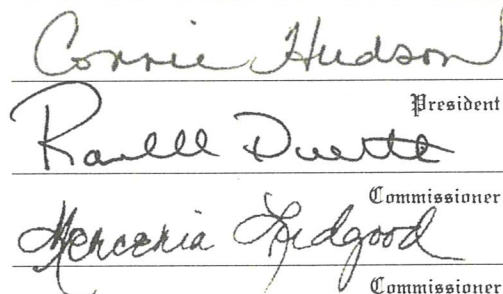 Connie Hudson
President
Randall Dueitt
Commissioner
Merceria Ludgood
Commissioner